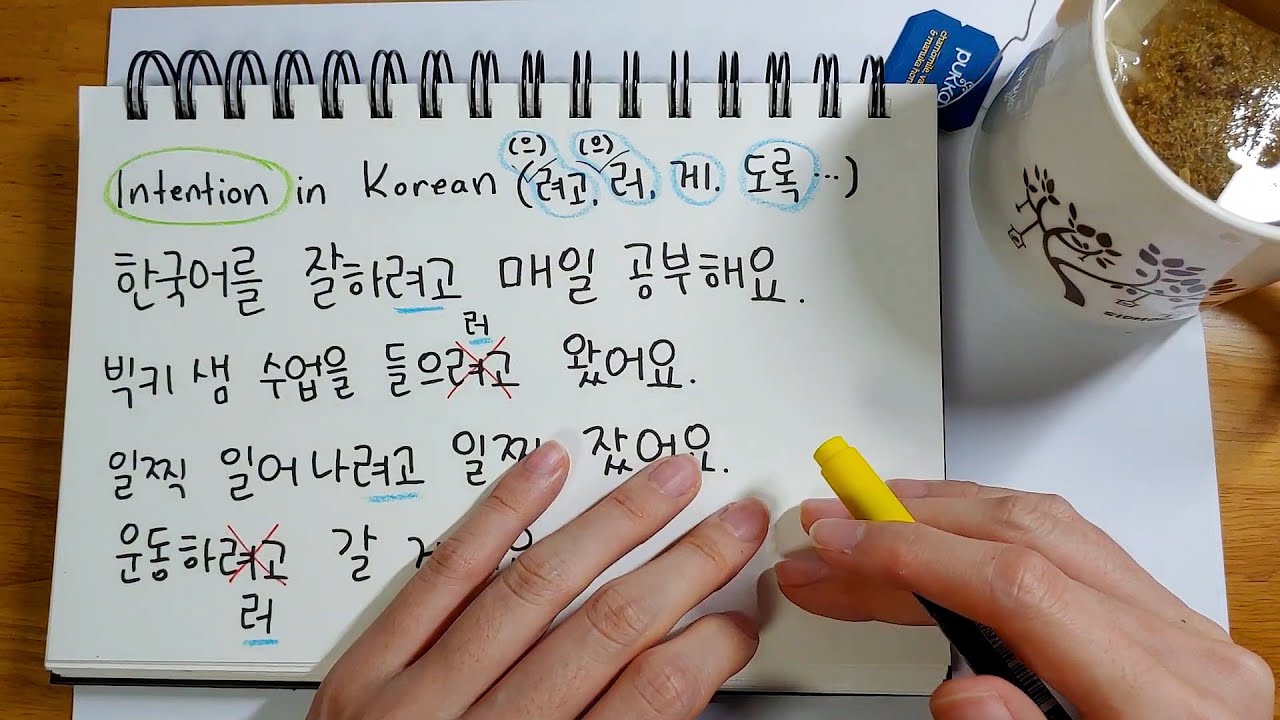 Intention in Korean ((으)려고, (으)러, 게, 도록...)
한국어를 잘하려고 매일 공부해요.
러
빅키 샘 수업을 들으려고 왔어요.
일찍 일어나려고 일찍 잤어요.
운동하려고 갈
러
pukka